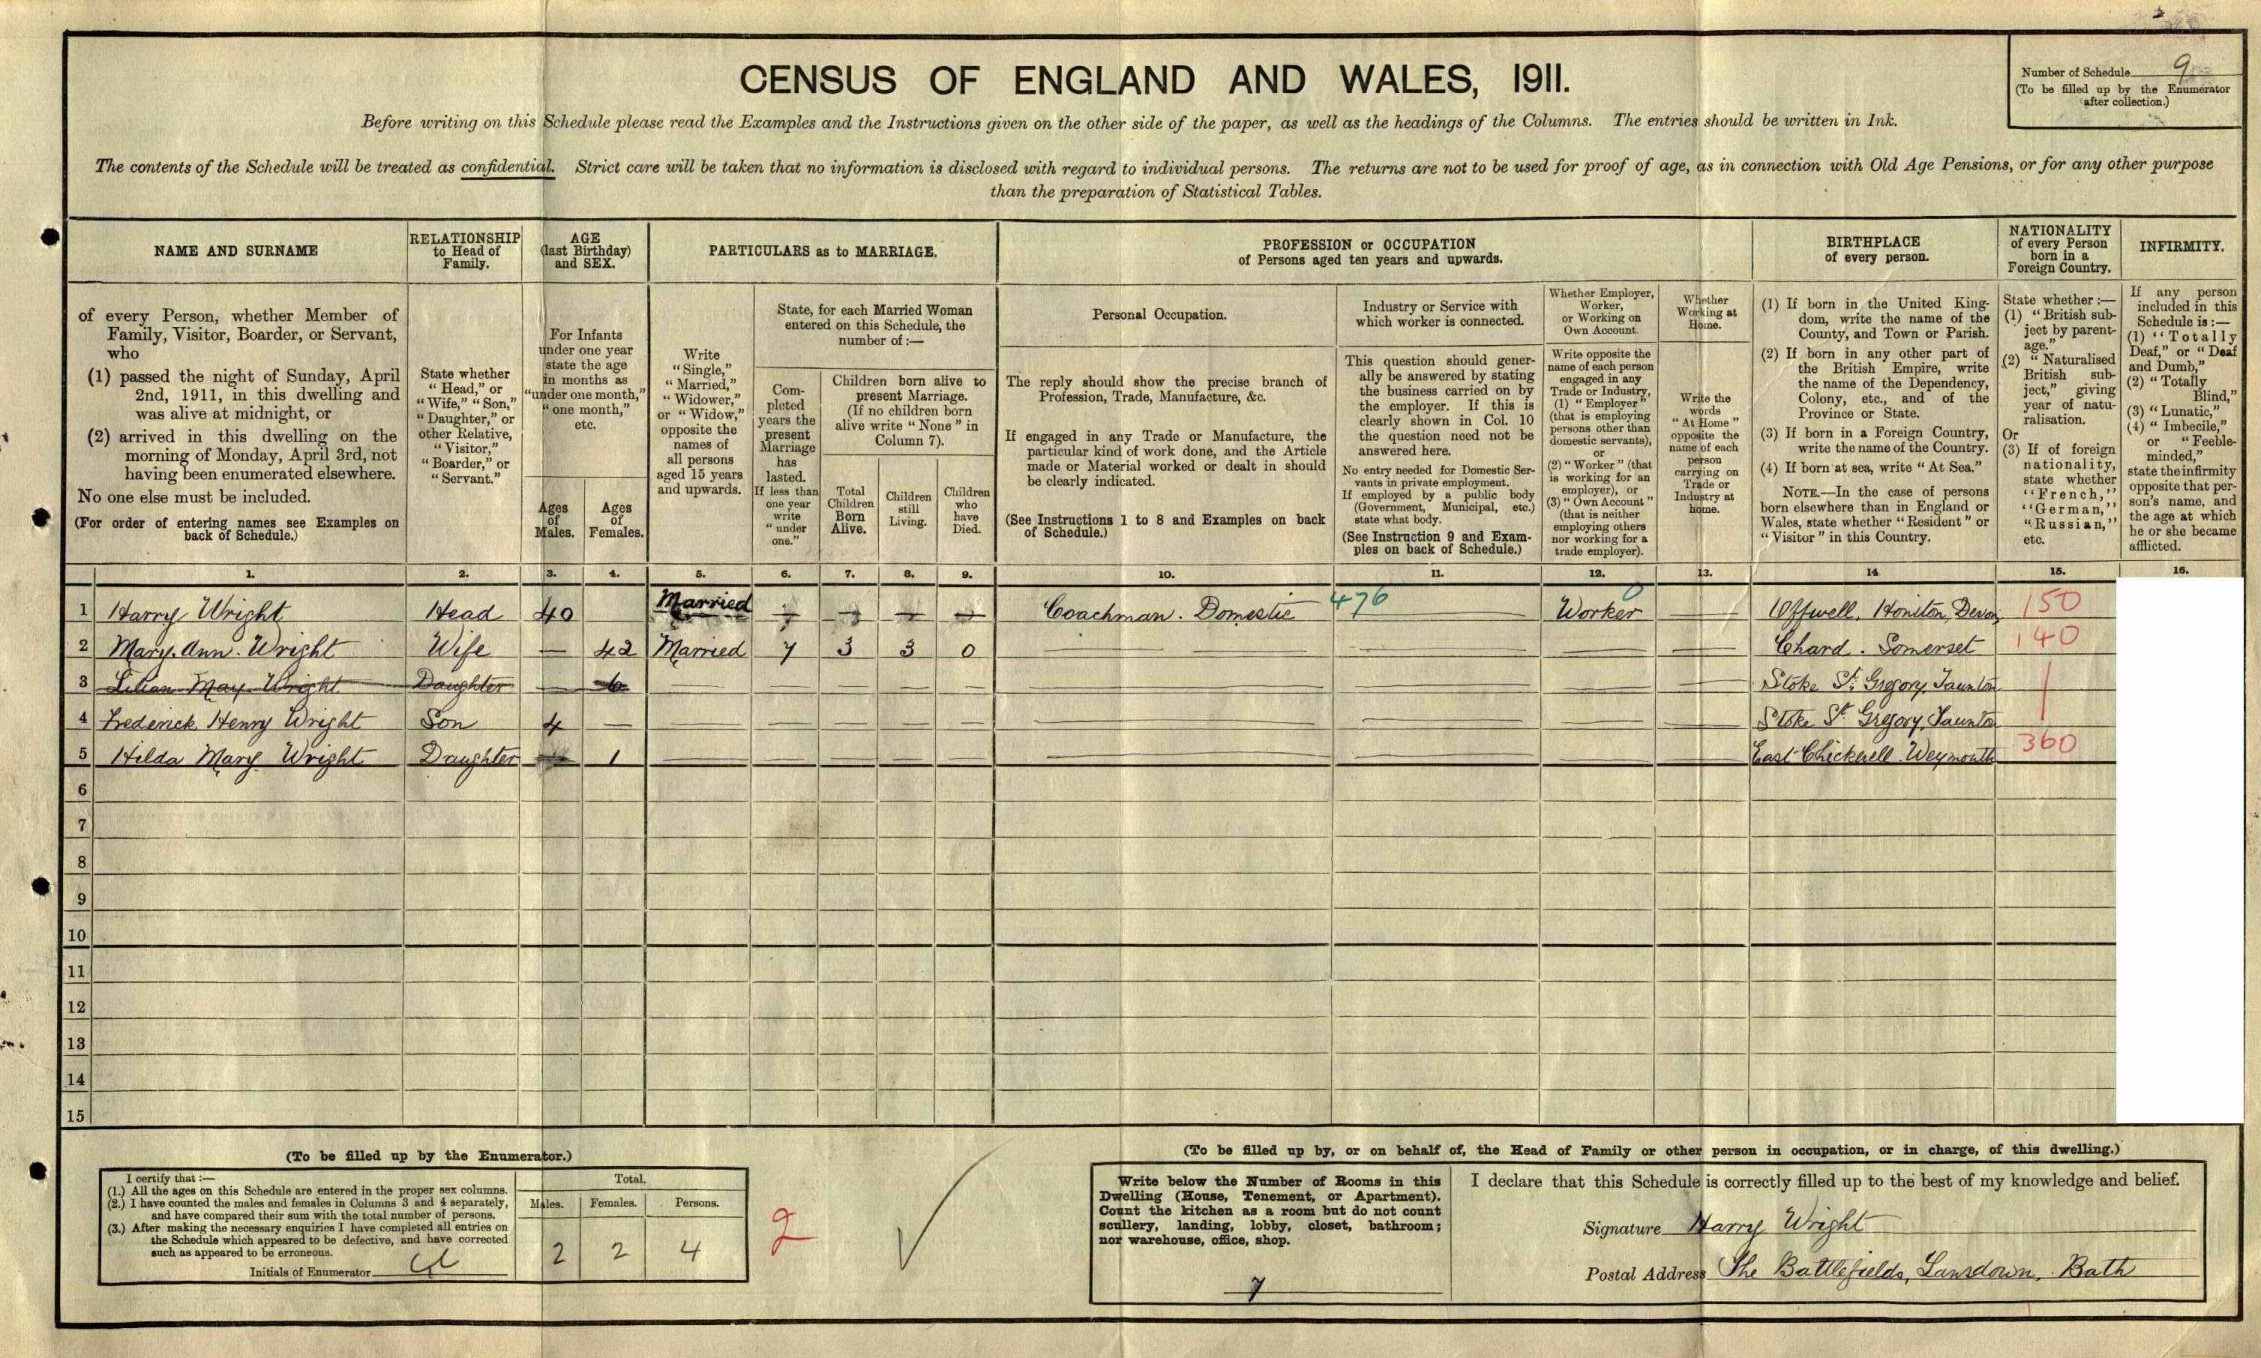 CENSUS OF ENGLAND AND WALES, 1911.
Number of Schedule 9
(To be filled up by the Enumerator
after collection.)
Before writing on this Schedule please read the Examples and the Instructions given on the other side of the paper, as well as the headings of the Columns. The entries should be written in Ink.
The contents of the Schedule will be treated as confidential. Strict care will be taken that no information is disclosed with regard to individual persons. The returns are not to be used for proof of age, as in connection with Old Age Pensions, or for any other purpose
than the preparation of Statistical Tables.
NAME AND SURNAME
of every Person, whether Member of
Family, Visitor, Boarder, or Servant,
who
(1) passed the night of Sunday, April
2nd, 1911, in this dwelling and
was alive at midnight, or
(2) arrived in this dwelling on the
morning of Monday, April 3rd, not
having been enumerated elsewhere.
No one else must be included.
(For order of entering names see Examples on
back of Schedule.)
RELATIONSHIP
to Head of
Family.
State whether
"Head," or
"Wife," "Son,"
"Daughter," or
other Relative,
"Visitor,"
"Boarder," or
"Servant."
AGE
(last Birthday)
and SEX.
For Infants
under one year
state the age
in months as
"under one month,"
"one month,"
etc.
Ages
of
Males.
Ages
of
Females.
PARTICULARS as to MARRIAGE.
Write
"Single,"
"Married,"
"Widower,"
or "Widow,"
opposite the
names of
all persons
aged 15 years
and upwards.
State, for each Married Woman
entered on this Schedule, the
number of :—
Com-
pleted
years the
present
Marriage
has
lasted.
If less than
one year
write
"under
one."
Children born alive to
present Marriage.
(If no children born
alive write "None" in
Column 7).
Total
Children
Born
Alive.
Children
still
Living.
Children
who
have
Died.
PROFESSION or OCCUPATION
of Persons aged ten years and upwards.
Personal Occupation.
The reply should show the precise branch of
Profession, Trade, Manufacture, &c.
If engaged in any Trade or Manufacture, the
particular kind of work done, and the Article
made or Material worked or dealt in should
be clearly indicated.
(See Instructions 1 to 8 and Examples on back
of Schedule.)
Industry or Service with
which worker is connected.
This question should gener-
ally be answered by stating
the business carried on by
the employer. If this is
clearly shown in Col. 10
the question need not be
answered here.
No entry needed for Domestic Ser-
vants in private employment.
If employed by a public body
(Government, Municipal, etc.)
state what body.
(See Instruction 9 and Exam-
ples on back of Schedule.)
Whether Employer,
Worker,
or Working on
Own Account.
Write opposite the
name of each person
engaged in any
Trade or Industry,
(1) "Employer"
(that is employing
persons other than
domestic servants),
or
(2) "Worker" (that
is working for an
employer), or
(3) "Own Account"
(that is neither
employing others
nor working for a
trade employer).
Whether
Working at
Home.
Write the
words
"At Home"
opposite the
name of each
person
carrying on
Trade or
Industry at
home.
BIRTHPLACE
of every person.
(1) If born in the United King-
dom, write the name of the
County, and Town or Parish.
(2) If born in any other part of
the British Empire, write
the name of the Dependency,
Colony, etc., and of the
Province or State.
(3) If born in a Foreign Country,
write the name of the Country.
(4) If born at sea, write "At Sea."
NOTE.—In the case of persons
born elsewhere than in England or
Wales, state whether "Resident" or
"Visitor" in this Country.
NATIONALITY
of every Person
born in a
Foreign Country.
State whether :—
(1) "British sub-
ject by parent-
age,"
(2) "Naturalised
British sub-
ject," giving
year of natu-
ralisation.
Or
(3) If of foreign
nationality,
state whether
"French,"
"German,"
"Russian,"
etc.
INFIRMITY.
If any person
included in this
Schedule is :—
(1) "Totally
Deaf," or "Deaf
and Dumb,"
(2) "Totally
Blind,"
(3) "Lunatic,"
(4) "Imbecile,"
or "Feeble-
minded,"
state the infirmity
opposite that per-
son's name, and
the age at which
he or she became
afflicted.
1. 2. 3. 4. 5. 6. 7. 8. 9. 10. 11. 12. 13. 14 15. 16.
1 Harry Wright Head 40 Married — — — — Coachman. Domestic 476 — Worker 0 — Offwell, Honiton, Devon, 150
2 Mary. Ann. Wright Wife — 42 Married 7 3 3 0 — — — — Chard. Somerset 140
3 Lilian May Wright Daughter — 6 — — — — — — — — — Stoke St. Gregory, Taunton
4 Frederick Henry Wright Son 4 — — — — — — — — — — Stoke St. Gregory, Taunton
5 Hilda Mary Wright Daughter — 1 — — — — — — — — — East Chickerell Weymouth 360
6
7
8
9
10
11
12
13
14
15
(To be filled up by the Enumerator.)
I certify that :—
(1.) All the ages on this Schedule are entered in the proper sex columns.
(2.) I have counted the males and females in Columns 3 and 4 separately,
and have compared their sum with the total number of persons.
(3.) After making the necessary enquiries I have completed all entries on
the Schedule which appeared to be defective, and have corrected
such as appeared to be erroneous.
Initials of Enumerator
Total.
Males. Females. Persons.
2 2 4
2
(To be filled up by, or on behalf of, the Head of Family or other person in occupation, or in charge, of this dwelling.)
Write below the Number of Rooms in this
Dwelling (House, Tenement, or Apartment).
Count the kitchen as a room but do not count
scullery, landing, lobby, closet, bathroom;
nor warehouse, office, shop.
7
I declare that this Schedule is correctly filled up to the best of my knowledge and belief.
Signature Harry Wright
Postal Address The Battlefields, Lansdown, Bath